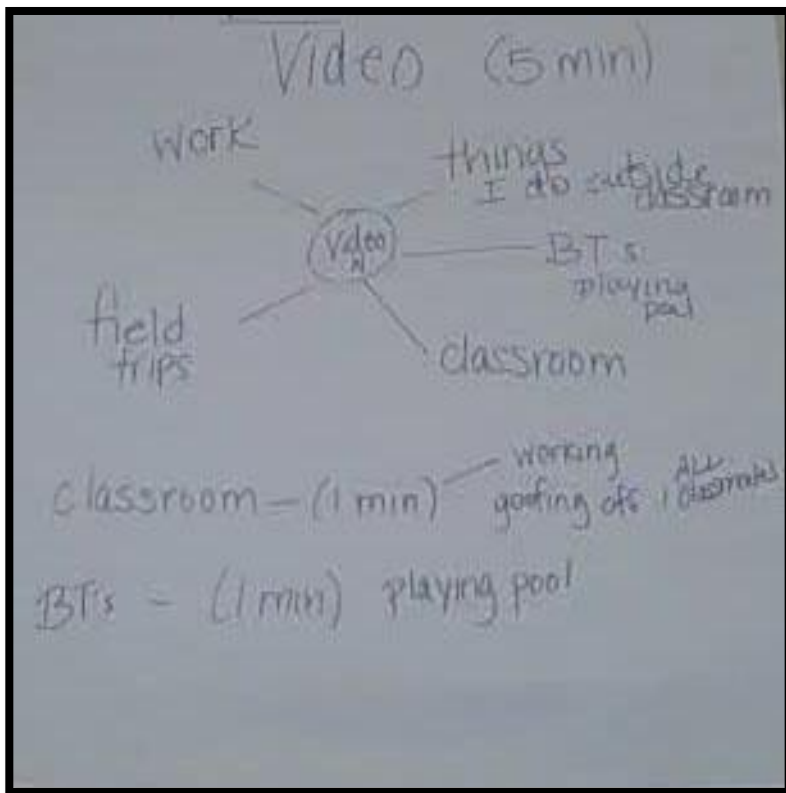 Video (5 min)
work
things
I do outside
classroom
Video
BT's
playing
pool
field
trips
classroom
classroom - (1 min)
working
goofing off,
ALL
classmates
BT's - (1 min) playing pool